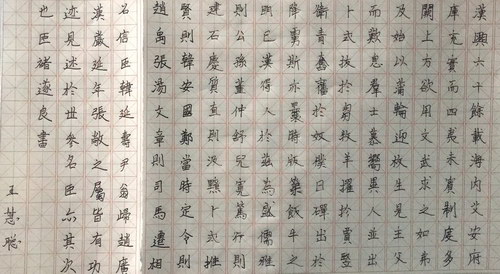 漢興六十餘載海内艾安府
庫充實而四夷未賓制度多
闕上方欲用文武求之如弗
及始以蒲輪迎枚生見主父
而歎息羣士慕嚮異人並出
卜式拔於芻牧羊擢於賈竪
衛青奮於奴僕日磾出於
降虜斯亦曩時築飯牛之
朋已漢得人於茲為盛儒雅
則公孫董仲舒兒寬篤行則
建石慶質直則汲黯卜式推
賢則韓安國鄭當時定令則
趙禹張湯文章則司馬遷相
名信臣韓延壽尹翁歸趙廣
漢嚴延年張敞之屬皆有功
迹見述於世參名臣亦其次
也臣褚遂良書
王慧聪